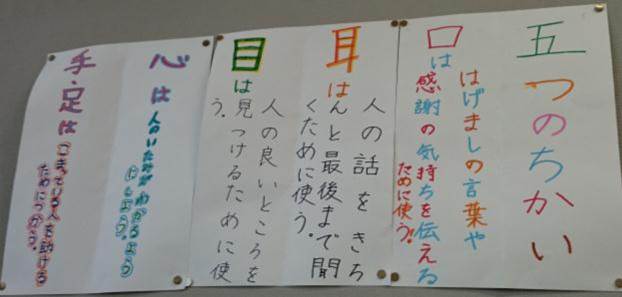 五つのちかい
口は
はげましの言葉や
感謝の気持ちを伝える
ために使う!
耳は
人の話をきち
んと最後まで聞
くために使う。
目は
人の良いところを
見つけるために使
う。
心は
人のいたみがわかるよう
にしよう。
手・足は
こまっている人を助ける
ためにつかう。